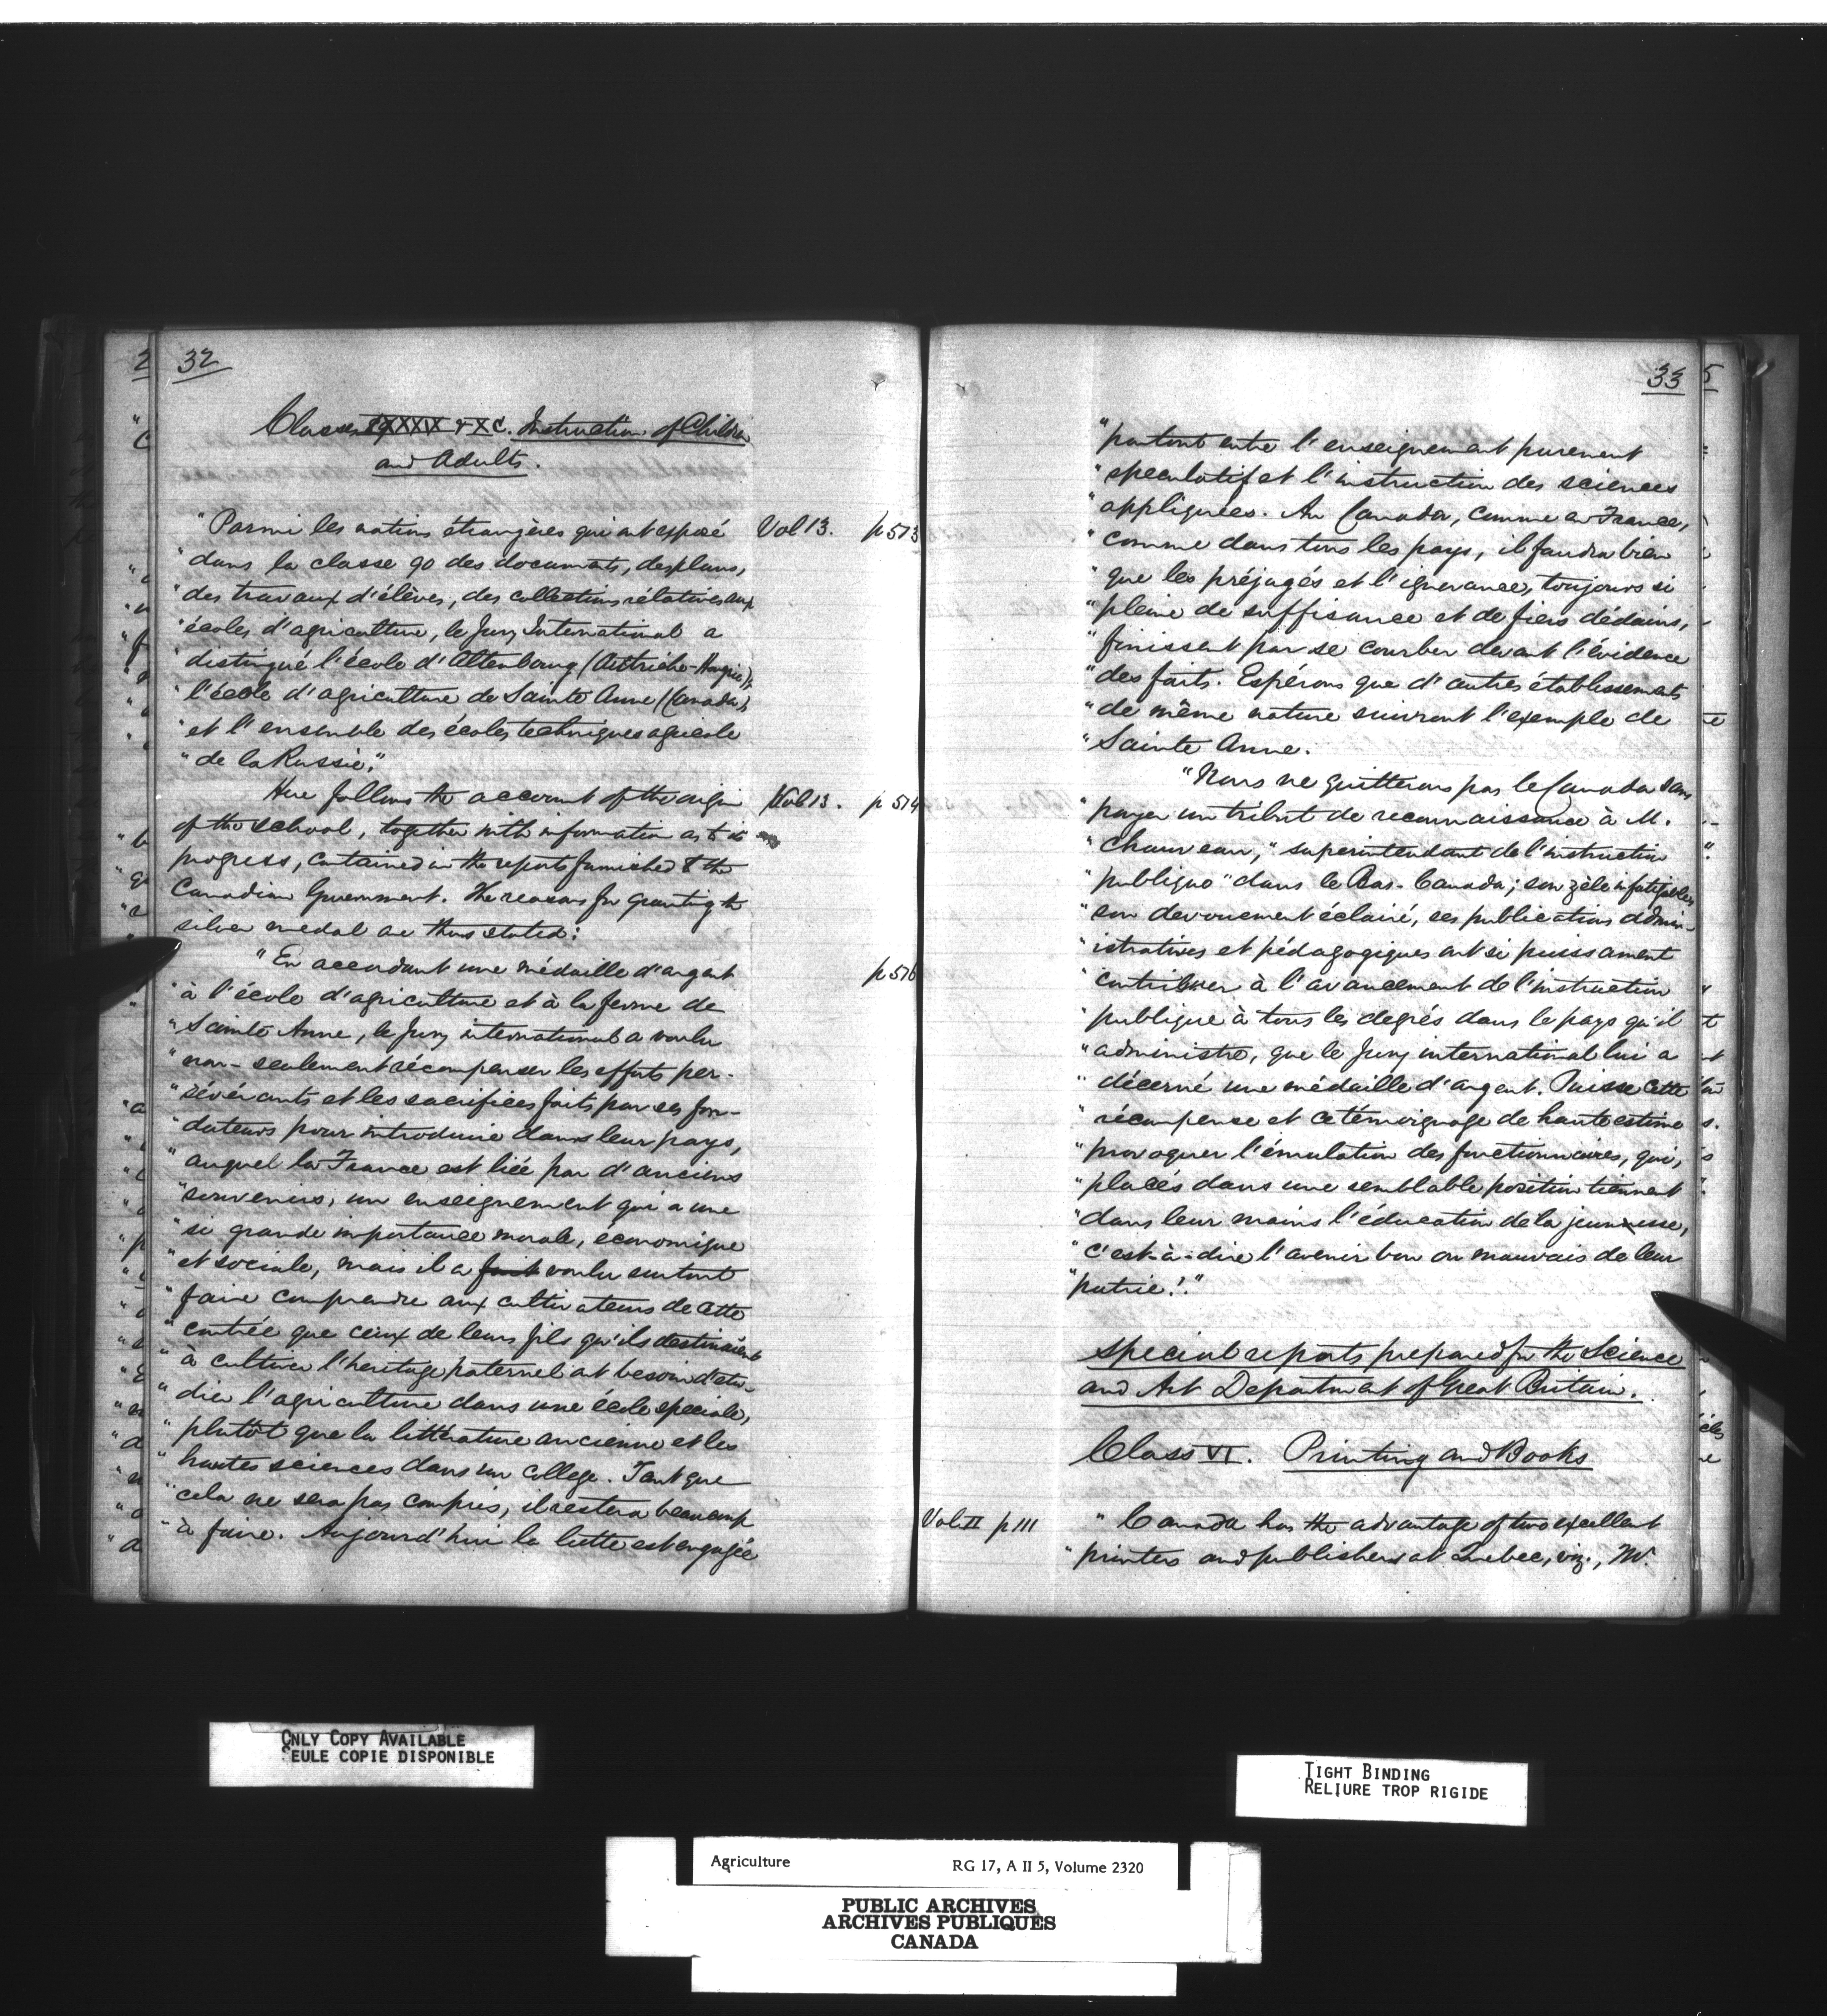 32
Classes LXXXIX & XC. Instruction of Children
and Adults.
"Parmi les nations étrangères qui ont exposé Vol 13. p 513
"dans la classe 90 des documents, des plans,
"des travaux d'élèves, des collections rélatives aux
"écoles d'agriculture, le Jury International a
"distingué l'école d'Altenbourg (Autriche-Hongrie);
"l'école d'agriculture de Sainte Anne (Canada);
"et l'ensemble des écoles techniques agricole
"de la Russie."
Here follows the account of the origin Vol 13. p 514
of the school, together with information as to its
progress, contained in the reports furnished to the
Canadian Government. The reasons for granting the
silver medal are thus stated:
"En accordant une médaille d'argent p 516
"à l'école d'agriculture et à la ferme de
"Sainte Anne, le Jury international a voulu
"non-seulement récompenser les efforts per-
"sévérants et les sacrifices faits par ses fon-
"dateurs pour introduire dans leur pays,
"auquel la France est liée par d'anciens
"souvenirs, un enseignement qui a une
"si grande importance morale, économique
"et sociale, mais il a fait voulu surtout
"faire comprendre aux cultivateurs de cette
"contrée que ceux de leurs fils qu'ils destinaient
"à cultiver l'heritage paternel ont besoin d'etu-
"dier l'agriculture dans une école speciale,
"plutôt que la littérature ancienne et les
"hautes sciences dans un college. Tant que
"cela ne sera pas compris, il restera beaucoup
"à faire. Aujourd'hui la lutte est engagée
33
"partout entre l'enseignement purement
"speculatif et l'instruction des sciences
"appliquées. Au Canada, comme en France,
"comme dans tous les pays, il faudra bien
"que les préjugés et l'ignorance, toujours si
"pleine de suffisance et de fiers dédains,
"finissent par se courber devant l'évidence
"des faits. Espérons que d'autres établissements
"de même nature suivront l'exemple de
"Sainte Anne.
"Nous ne quitterons pas le Canada sans
"payer un tribut de reconnaissance à M.
"Chauveau, "superintendant de l'instruction
"publique" dans le Bas-Canada; son zèle infatigable,
"son devouement éclairé, ses publications admin-
"istratives et pédagogiques ont si puissament
"contribuer à l'avancement de l'instruction
"publique à tous les degrés dans le pays qu'il
"administre, que le Jury international lui a
"décerné une médaille d'argent. Puisse cette
"récompense et ce témoignage de haute estime
"provoquer l'émulation des fonctionnaires, qui,
"placés dans une semblable position tiennent
"dans leur mains l'éducation de la jeunesse,
"c'est-à-dire l'avenir bon ou mauvais de leur
"patrie!"
Special reports prepared for the Science
and Art Department of Great Britain.
Class VI. Printing and Books
Vol. II p 111 "Canada has the advantage of two excellent
"printers and publishers at Quebec, viz., Mr.
ONLY COPY AVAILABLE
SEULE COPIE DISPONIBLE
TIGHT BINDING
RELIURE TROP RIGIDE
Agriculture RG 17, A II 5, Volume 2320
PUBLIC ARCHIVES
ARCHIVES PUBLIQUES
CANADA